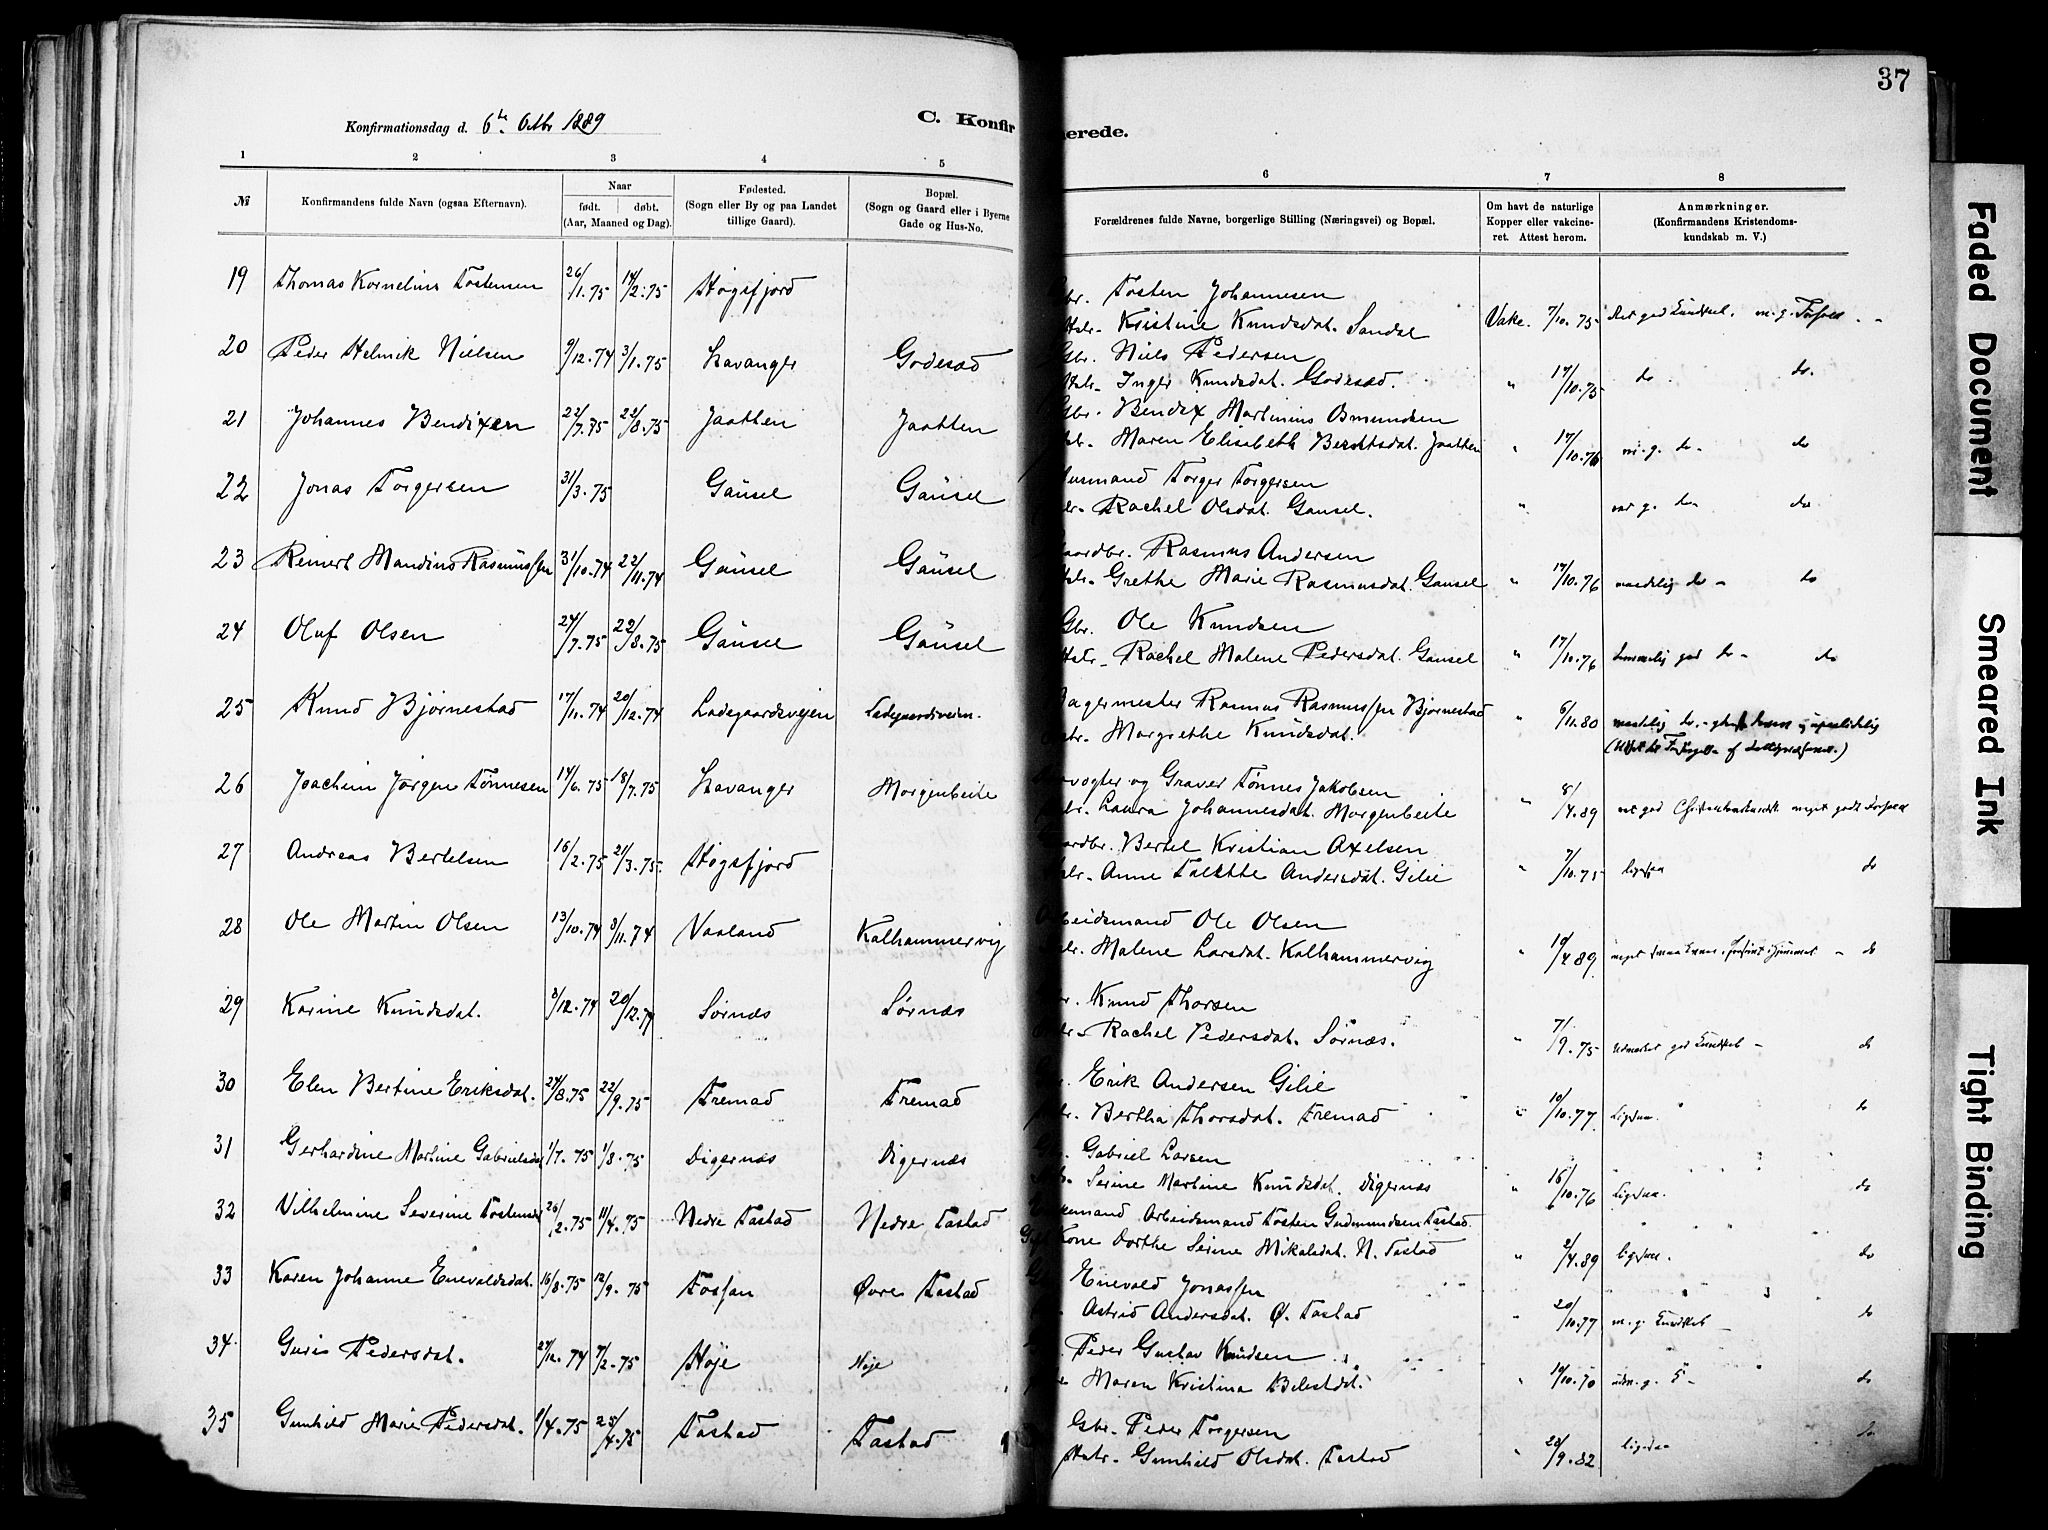 37
Konfirmationsdag d. 6te Octbr 1889
C. Konfir
merede.
1 2 3 4 5 6 7 8
№ Konfirmandens fulde Navn (ogsaa Efternavn).
Naar
født. døbt.
(Aar, Maaned og Dag).
Fødested.
(Sogn eller By og paa Landet
tillige Gaard).
Bopæl.
(Sogn og Gaard eller i Byerne
Gade og Hus-No.
Forældrenes fulde Navne, borgerlige Stilling (Næringsvei) og Bopæl.
Om havt de naturlige
Kopper eller vakcine-
ret. Attest herom.
Anmærkninger.
(Konfirmandens Kristendoms-
kundskab m. V.)
19 Thomas Kornelius Tostensen 26/1.75 14/2.75 Høgsfjord
Tosten Johannesen
Hstr. Kristine Knudsdat. Sandal Vakc. 7/10.75
20 Peder Helmik Nielsen 9/12.74 3/1.75 Stavanger Godesæd
Gbr. Niels Pedersen
Hstr. Inger Knudsdat. Godesæd. " 17/10.75 do do.
21 Johannes Bendixen 22/7.75 22/8.75 Jaatten Jaatten
Gbr. Bendix Martinius Osmundsen
Maren Elisabeth Berntsdat. Jaatten " 17/10.76 m. g. do do
22 Jonas Torgersen 31/3.75 Gausel Gausel
Husmand Torger Torgersen
Rachel Olsdat. Gausel. " do do
23 Reinert Mandius Rasmussen 31/10.74 22/11.74 Gausel Gausel
Gaardbr. Rasmus Andersen
Grethe Marie Rasmusdat. Gausel " 17/10.76 maadelig do do
24 Oluf Olsen 24/7.75 22/8.75 Gausel Gausel
Gbr. Ole Knudsen
Hstr. Rachel Malene Pedersdat. Gausel " 17/10.76 temmelig god do do
25 Knud Bjørnestad 17/11.74 20/12.74 Ladegaardsvejen Ladegaardsveien.
Bagermester Rasmus Rasmussen Bjørnestad
Margrethe Knudsdat. " 6/11.80 maadelig do
26 Joachim Jørgen Tønnesen 14/6.75 18/7.75 Stavanger Morgenbeite
og Graver Tønnes Jakobsen
Laura Johannesdat. Morgenbeite " 8/4.89
27 Andreas Bertelsen 16/2.75 21/3.75 Høgsfjord
Gaardbr. Bertel Kristian Axelsen
Anne Andersdat. Gilie " 7/10.75 ligesaa do
28 Ole Martin Olsen 13/10.74 8/11.74 Vaaland Kalhammervig
Arbeidsmand Ole Olsen
Malene Larsdat. Kalhammervig " 10/4.89 do
29 Karine Knudsdat. 8/12.74 20/12.74 Sørnæs Sørnæs
Knud Thorsen
Rachel Pedersdat. Sørnæs. " 7/9.75 Udmærket god Kundskab do
30 Elen Bertine Eriksdat. 24/8.75 22/9.75 Fremad Fremad
Erik Andersen Gilie
Bertha Thorsdat. Fremad " 10/10.77 Ligesaa. do
31 Gerhardine Martine Gabrielsdat 1/7.75 1/8.75 Digernæs Digernæs
Gabriel Larsen
Serine Martine Knudsdat. Digernæs " 16/10.76 Ligesaa. do
32 Vilhelmine Severine Tostensd 26/2.75 11/4.75 Nedre Tastad Nedre Tastad
Arbeidsmand Tosten Gudmundsen Tastad.
Kone Dorthe Serine Mikalsdat. N. Tastad " 2/4.89 ligesaa. do
33 Karen Johanne Enevaldsdat. 16/8.75 12/9.75 Øvre Tastad
Enevald Jonassen
Astrid Andersdat. Ø. Tastad " 20/10.77 m. g. Kundskab do
34 Guris Pedersdat. 27/12.74 7/2.75 Høje Høje
Peder Gustav Knudsen
Maren Kristina " 19/10.70 do
35 Gunhild Marie Pedersdat. 1/4.75 25/4.75 Tastad Tastad
Gbr. Peder Torgersen
Hstr. Gunhild Olsdat. Tastad " 28/9.82 ligesaa do
Faded Document
Smeared Ink
Tight Binding